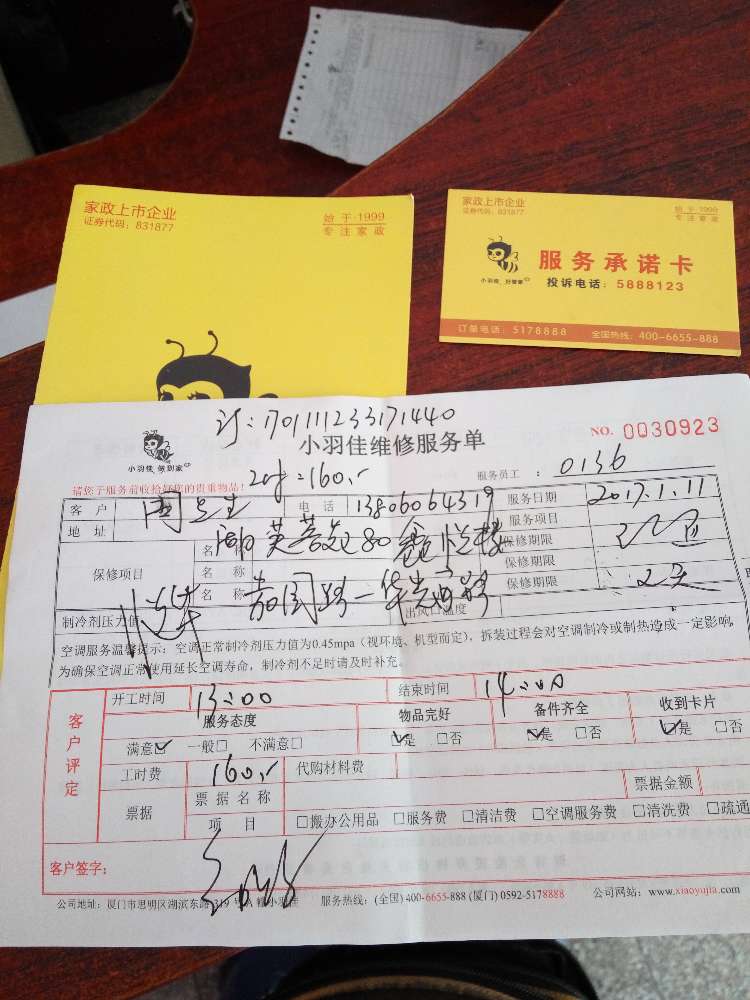 家政上市企业
证券代码：831877
始于·1999
专注家政
家政上市企业
证券代码：831877
始于·1999
专注家政
服务承诺卡
小羽佳 好管家
投诉电话：5888123
订单电话：5178888 全国热线：400-6655-888
订：1701111233171440
小羽佳维修服务单
NO. 0030923
小羽佳 做到家
160.
服务员工：0136
请您于服务前收拾好您的贵重物品！
客户 周先生 电话 13806064319 服务日期 2017.1.11
地址 服务项目
保修项目
名称 保修期限
名称 保修期限
名称 保修期限 2天
制冷剂压力值 出风口温度
空调服务温馨提示：空调正常制冷剂压力值为0.45mpa（视环境、机型而定），拆装过程会对空调制冷或制热造成一定影响，
为确保空调正常使用延长空调寿命，制冷剂不足时请及时补充。
客户评定
开工时间 13:00 结束时间 14:00
服务态度 物品完好 备件齐全 收到卡片
满意☑ 一般□ 不满意□ ☑是 □否 ☑是 □否 ☑是 □否
工时费 160. 代购材料费
票据 票据名称 票据金额
项目 □搬办公用品 □服务费 □清洁费 □空调服务费 □清洗费 □疏通
客户签字：
公司地址：厦门市思明区湖滨东路319号 服务热线：(全国) 400-6655-888 (厦门) 0592-5178888 公司网站：www.xiaoyujia.com